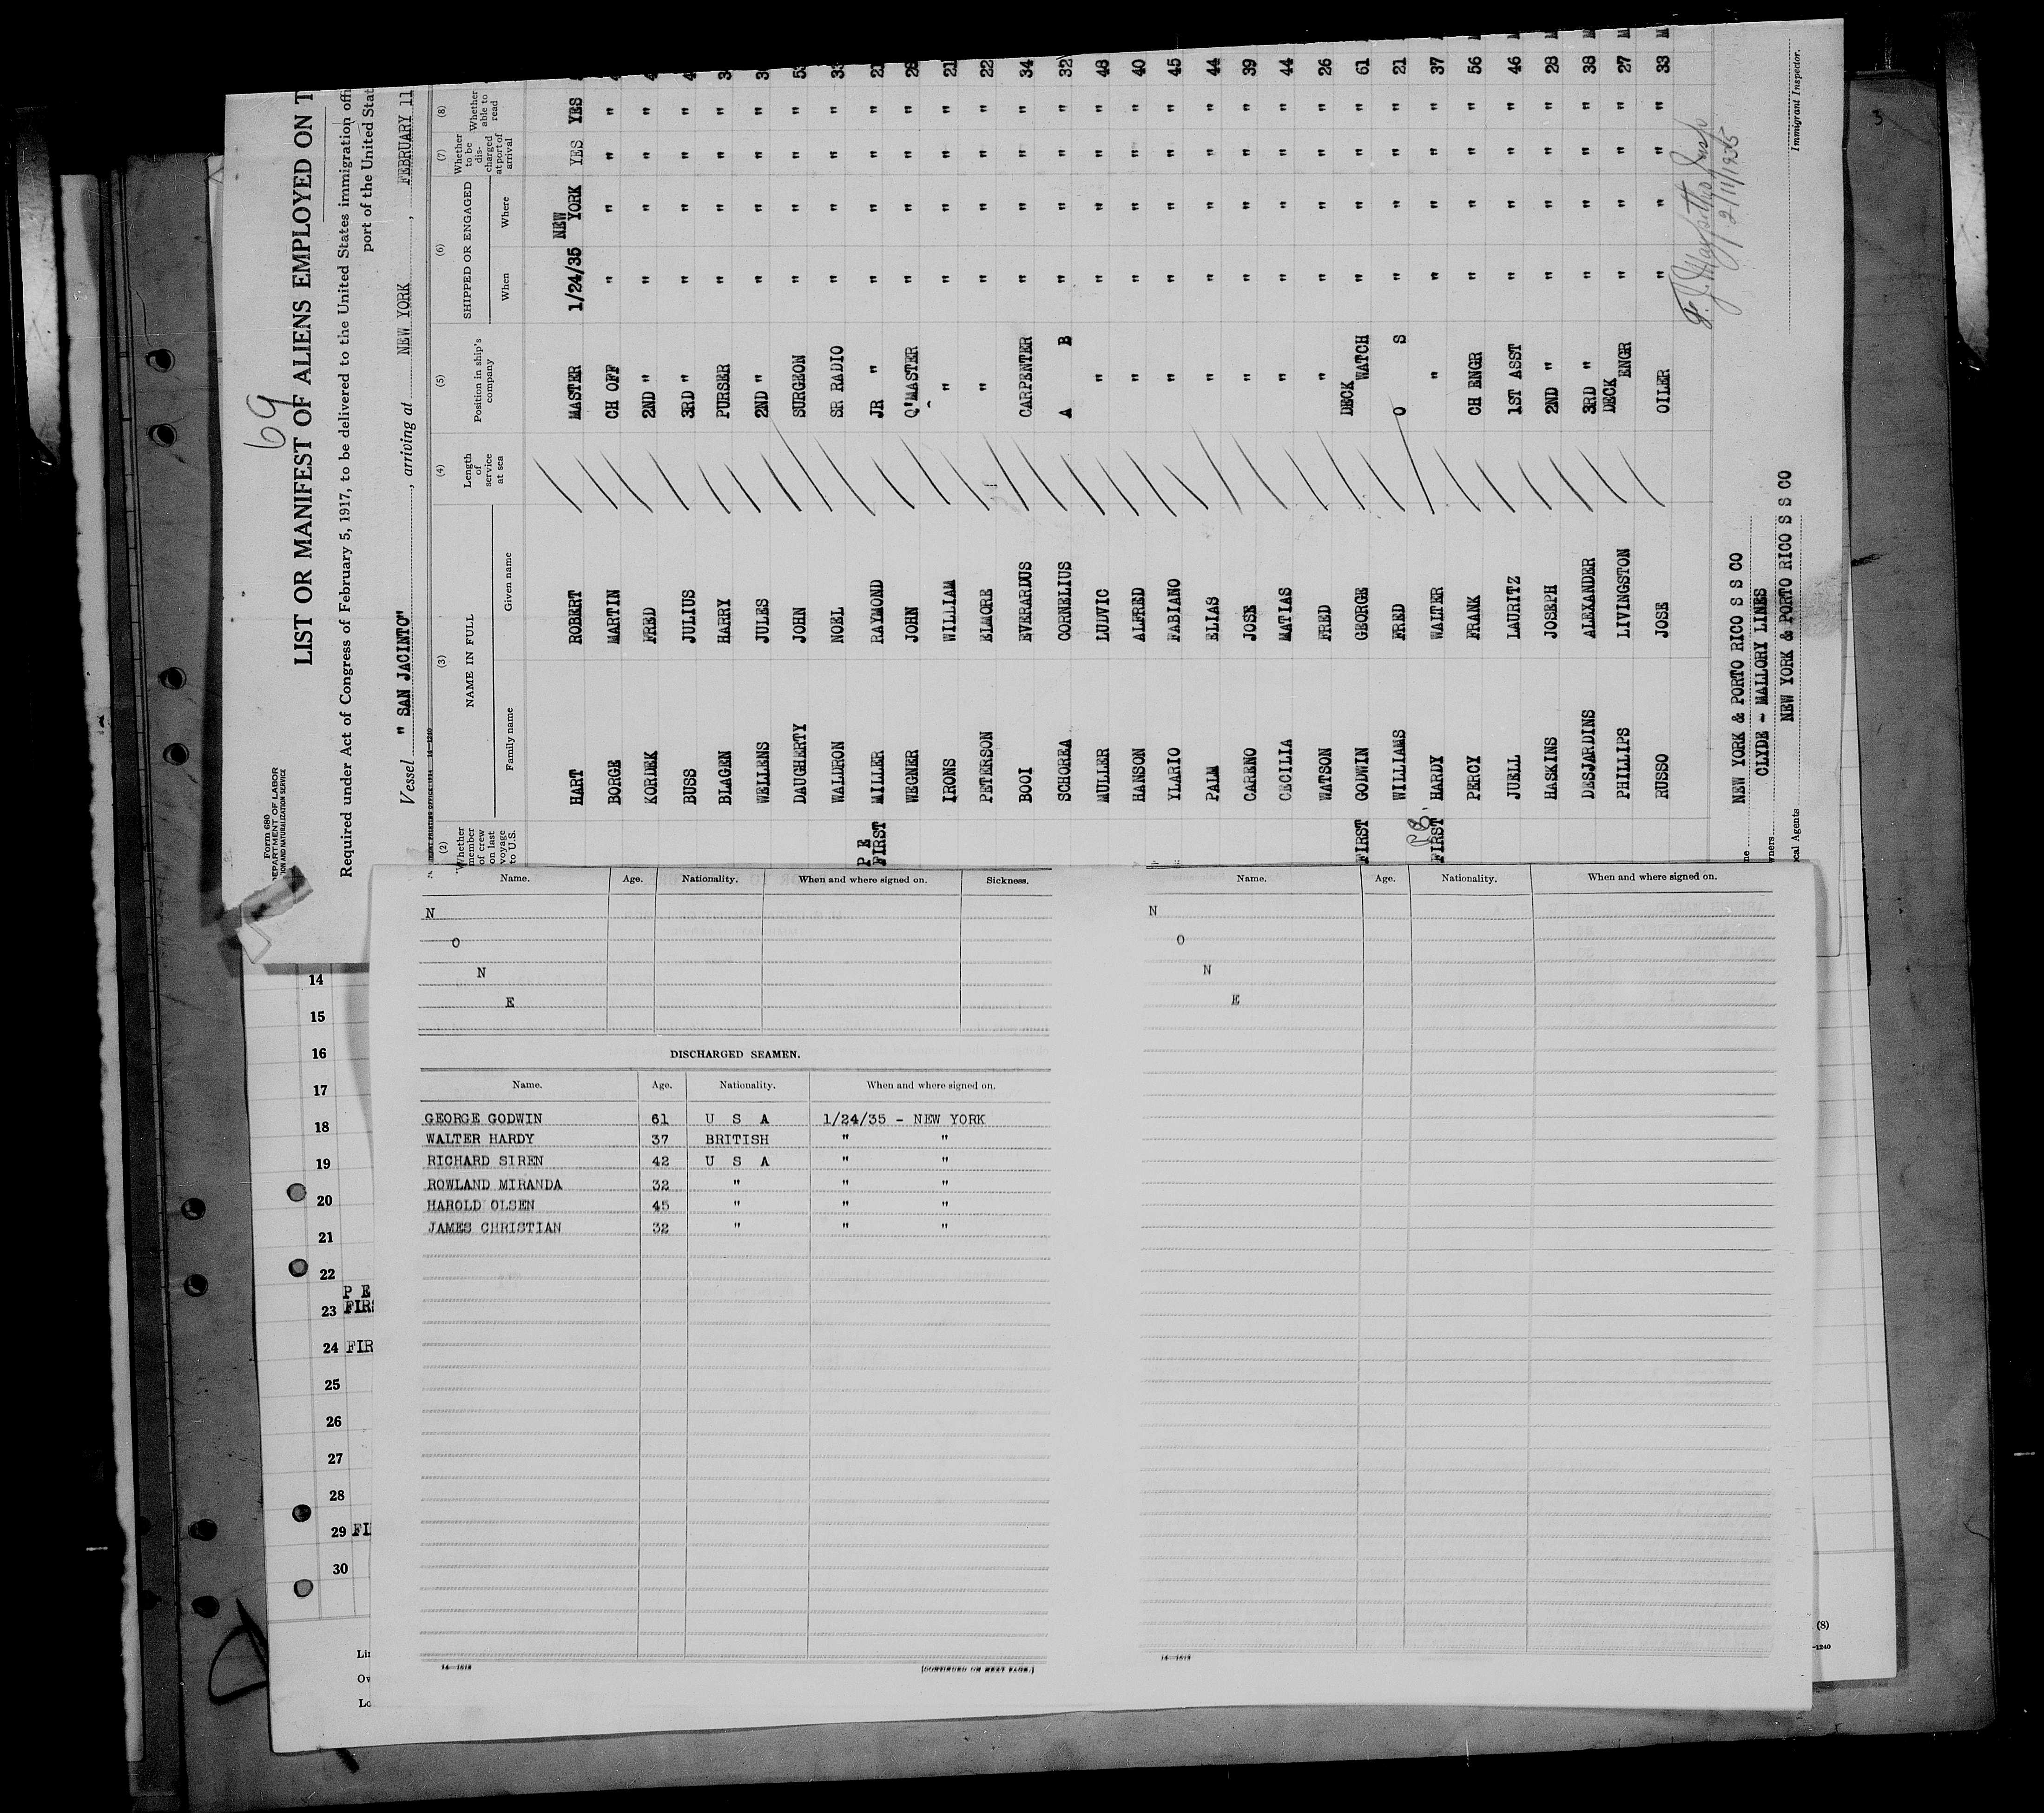 69
Form 680
LIST OR MANIFEST OF ALIENS EMPLOYED ON T
Required under Act of Congress of February 5, 1917, to be delivered to the United States immigration offi
port of the United Stat
Vessel " SAN JACINTO" , arriving at NEW YORK , FEBRUARY 11
(2) (3) (4) (5) (6) (7) (8)
Whether member of crew on last voyage to U.S. NAME IN FULL Length of service at sea Position in ship's company SHIPPED OR ENGAGED Whether to be discharged at port of arrival Whether able to read
Family name Given name When Where
HART ROBERT MASTER 1/24/35 NEW YORK YES YES
BORGE MARTIN CH OFF " " " "
KORDEK FRED 2ND " " " " "
BUSS JULIUS 3RD " " " " "
BLAGEN HARRY PURSER " " " "
WELLENS JULES 2ND " " " " "
DAUGHERTY JOHN SURGEON " " " "
WALDRON NOEL SR RADIO " " " "
P E
FIRST MILLER RAYMOND JR " " " " " 21
WEGNER JOHN Q'MASTER " " " " 28
IRONS WILLIAM " " " " " 21
PETERSON ELMORE " " " " " 22
BOOI EVERARDUS CARPENTER " " " " 34
SCHOREA CORNELIUS A B " " " " 32
MULLER LUDVIC " " " " " 48
HANSON ALFRED " " " " " 40
YLARIO FABIANO " " " " " 45
PALM ELIAS " " " " " 44
CARENO JOSE " " " " " 39
CECILIA MATIAS " " " " " 44
WATSON FRED " " " " " 26
FIRST GODWIN GEORGE DECK WATCH " " " " 61
WILLIAMS FRED O S " " " " 21
FIRST HARDY WALTER " " " " " 37
PERCY FRANK CH ENGR " " " " 56
JUELL LAURITZ 1ST ASST " " " " 46
HASKINS JOSEPH 2ND " " " " " 28
DESJARDINS ALEXANDER 3RD " " " " " 38
PHILLIPS LIVINGSTON DECK ENGR " " " " 27
RUSSO JOSE OILER " " " " 33
2/11/1935
NEW YORK & PORTO RICO S S CO
CLYDE - MALLORY LINES
NEW YORK & PORTO RICO S S CO
Immigrant Inspector.
Name. Age. Nationality. When and where signed on. Sickness.
N
O
N
E
DISCHARGED SEAMEN.
Name. Age. Nationality. When and where signed on.
GEORGE GODWIN 61 U S A 1/24/35 - NEW YORK
WALTER HARDY 37 BRITISH " "
RICHARD SIREN 42 U S A " "
ROWLAND MIRANDA 32 " " "
HAROLD OLSEN 45 " " "
JAMES CHRISTIAN 32 " " "
Name. Age. Nationality. When and where signed on.
N
O
N
E
14
15
16
17
18
19
20
21
22
P E
23 FIRS
24 FIR
25
26
27
28
29 FI
30
(8)